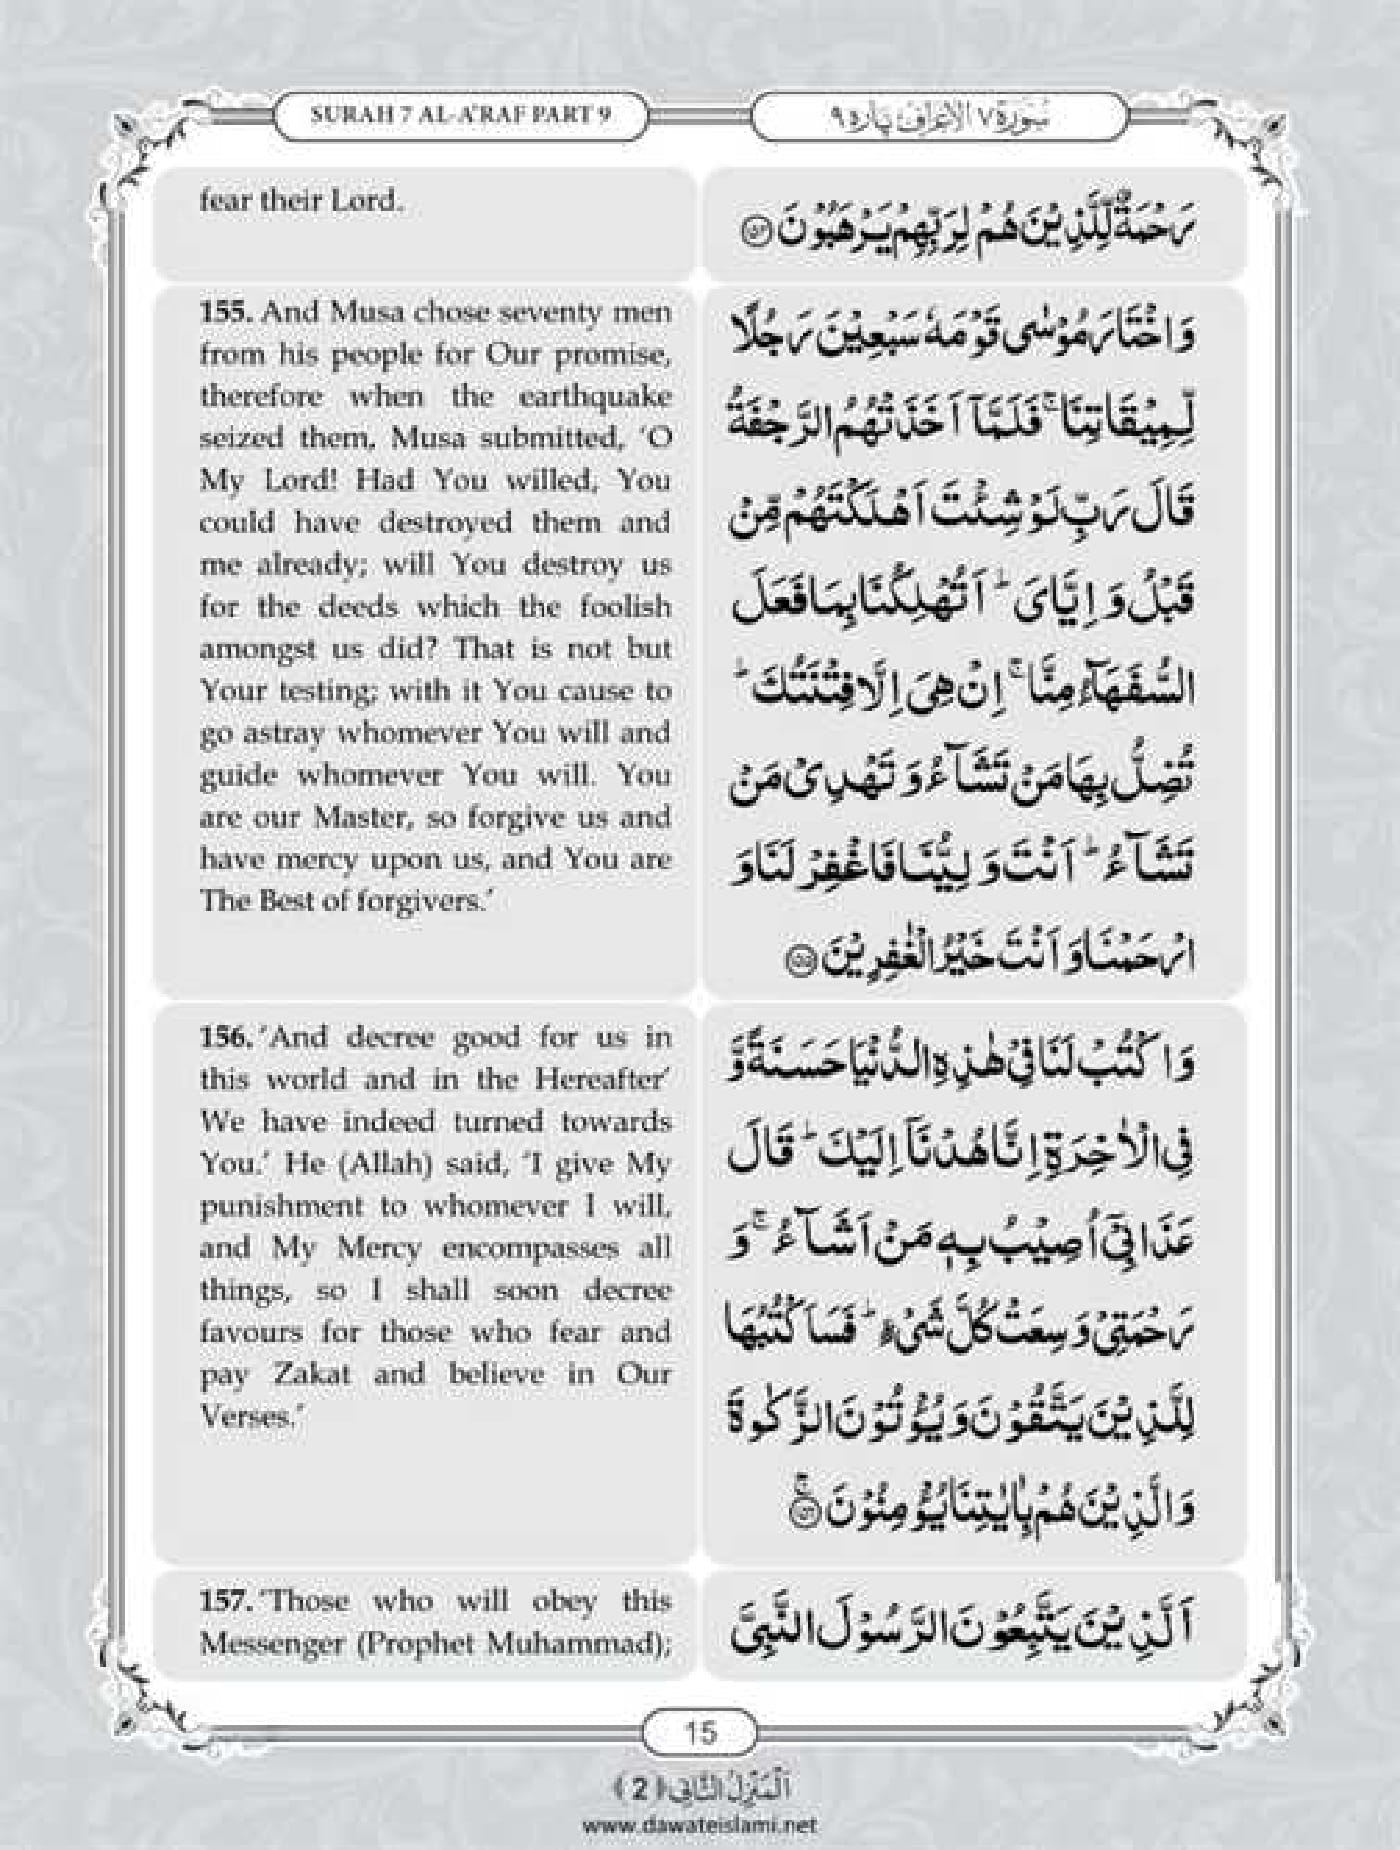 SURAH 7 AL-A'RAF PART 9
سُورَة ٧ الاعراف پاره ٩
fear their Lord.
رَحْمَةٌ لِّلَّذِيْنَ هُمْ لِرَبِّهِمْ يَرْهَبُوْنَ ﴿۱۵۴﴾
155. And Musa chose seventy men
from his people for Our promise,
therefore when the earthquake
seized them, Musa submitted, 'O
My Lord! Had You willed, You
could have destroyed them and
me already; will You destroy us
for the deeds which the foolish
amongst us did? That is not but
Your testing; with it You cause to
go astray whomever You will and
guide whomever You will. You
are our Master, so forgive us and
have mercy upon us, and You are
The Best of forgivers.'
وَاخْتَارَ مُوْسٰى قَوْمَهٗ سَبْعِيْنَ رَجُلًا
لِّمِيْقَاتِنَا ۚ فَلَمَّآ اَخَذَتْهُمُ الرَّجْفَةُ
قَالَ رَبِّ لَوْ شِئْتَ اَهْلَكْتَهُمْ مِّنْ
قَبْلُ وَ اِيَّايَ ؕ اَتُهْلِكُنَا بِمَا فَعَلَ
السُّفَهَآءُ مِنَّا ۚ اِنْ هِيَ اِلَّا فِتْنَتُكَ ؕ
تُضِلُّ بِهَا مَنْ تَشَآءُ وَ تَهْدِيْ مَنْ
تَشَآءُ ؕ اَنْتَ وَلِيُّنَا فَاغْفِرْ لَنَا وَ
ارْحَمْنَا وَ اَنْتَ خَيْرُ الْغٰفِرِيْنَ ﴿۱۵۵﴾
156. 'And decree good for us in
this world and in the Hereafter'
We have indeed turned towards
You.' He (Allah) said, 'I give My
punishment to whomever I will,
and My Mercy encompasses all
things, so I shall soon decree
favours for those who fear and
pay Zakat and believe in Our
Verses.'
وَ اكْتُبْ لَنَا فِيْ هٰذِهِ الدُّنْيَا حَسَنَةً وَّ
فِي الْاٰخِرَةِ اِنَّا هُدْنَآ اِلَيْكَ ؕ قَالَ
عَذَابِيْٓ اُصِيْبُ بِهٖ مَنْ اَشَآءُ ۚ وَ
رَحْمَتِيْ وَسِعَتْ كُلَّ شَيْءٍ ؕ فَسَاَكْتُبُهَا
لِلَّذِيْنَ يَتَّقُوْنَ وَ يُؤْتُوْنَ الزَّكٰوةَ
وَالَّذِيْنَ هُمْ بِاٰيٰتِنَا يُؤْمِنُوْنَ ﴿۱۵۶﴾ۚ
157. 'Those who will obey this
Messenger (Prophet Muhammad);
اَلَّذِيْنَ يَتَّبِعُوْنَ الرَّسُوْلَ النَّبِيَّ
15
اَلْمَنْزِلُ الثَّانِي (2)
www.dawateislami.net